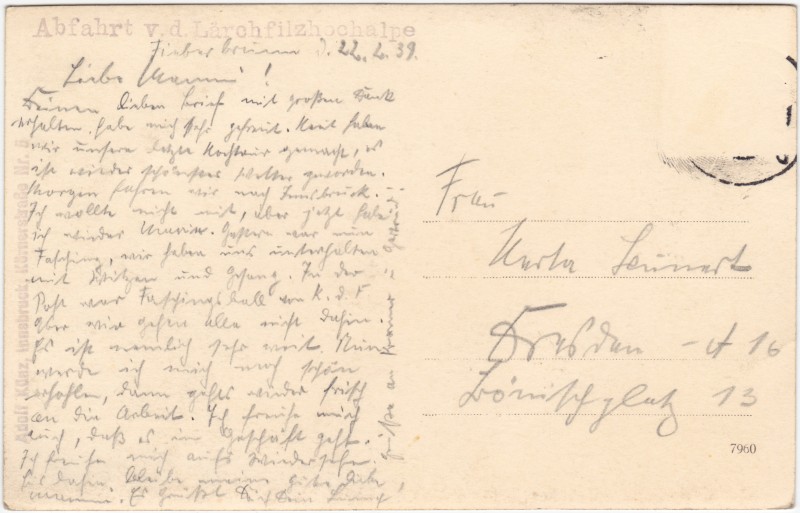 Abfahrt v. d. Lärchfilzhochalpe
Fieberbrunn d. 22.2.39.
Liebe Mammi!
Deinen lieben Brief mit großem Dank
erhalten, habe mich sehr gefreut. Heut haben
wir unsere letzte Hochtour gemacht, es
ist wieder schönstes Wetter geworden.
Morgen fahren wir nach Innsbruck.
Ich wollte nicht mit, aber jetzt habe
ich wieder Gestern war nun
Fasching, wir haben uns unterhalten
mit Witzen und Gesang. In der
Post war Faschingsball von K. d. F
aber wir gehen alle nicht dahin.
Es ist nemlich sehr weit. Nun
werde ich mich noch schön
erholen, dann gehts wieder frisch
an die Arbeit. Ich freue mich
auch, daß es im Geschäft geht.
Ich freue mich aufs Wiedersehn.
Bis dahin bleibe meine gute liebe
Mammi. Es grüßt Dich Dein
Grüße an
Adolf Künz, Innsbruck, Körnerstraße Nr.
Frau
Herta
Dresden - A 16
Bönischplatz 13
7960